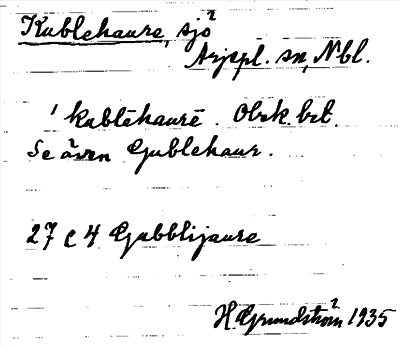 Kublehaure, sjö
Arjepl. sn, Nbl.
'kublēhaurē. Obsk. bet.
Se även Gublehaur.
27 C 4 Gubblijaure
H. Grundström 1935